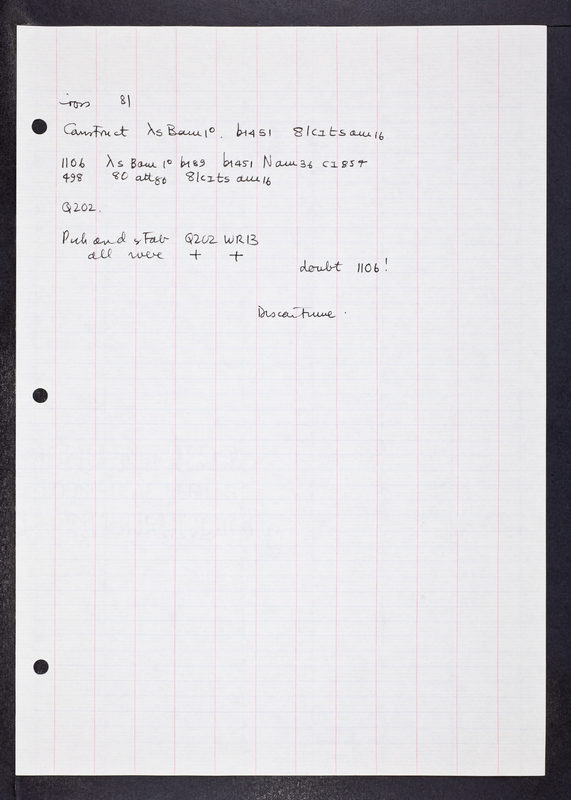 81
Construct λs Bam 1° . b1451 8/c1ts am16
1106 λs Bam 1° b189 b1451 Nam36 c1857
498 80 att80 8/c1ts am16
Q202.
Pick and stab Q202 WR13
all were + +
doubt 1106!
Discontinue .